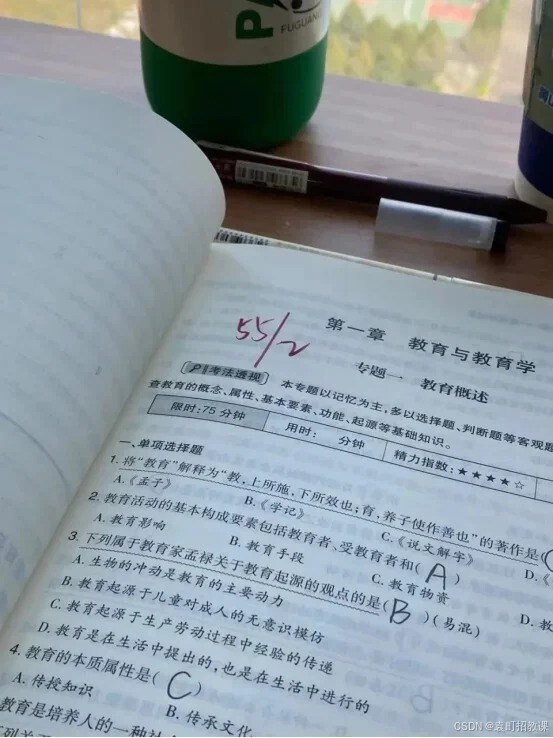 PUGUANG
55/2
第一章 教育与教育学
专题一 教育概述
考法透视 本专题以记忆为主,多以选择题、判断题等客观题
查教育的概念、属性、基本要素、功能、起源等基础知识。
限时:75 分钟 用时: 分钟 精力指数:★★★★☆
一、单项选择题
1. 将“教育”解释为“教,上所施,下所效也;育,养子使作善也”的著作是(
A.《孟子》 B.《学记》 C.《说文解字》 D.《
2. 教育活动的基本构成要素包括教育者、受教育者和( A )
A. 教育影响 B. 教育手段 C. 教育物资 D. 教
3. 下列属于教育家孟禄关于教育起源的观点的是( B )(易混)
A. 生物的冲动是教育的主要动力
B. 教育起源于儿童对成人的无意识模仿
C. 教育起源于生产劳动过程中经验的传递
D. 教育是在生活中提出的,也是在生活中进行的
4. 教育的本质属性是( C )
A. 传授知识 B. 传承文化
教育是培养人的一种社
CSDN @袁町招教课